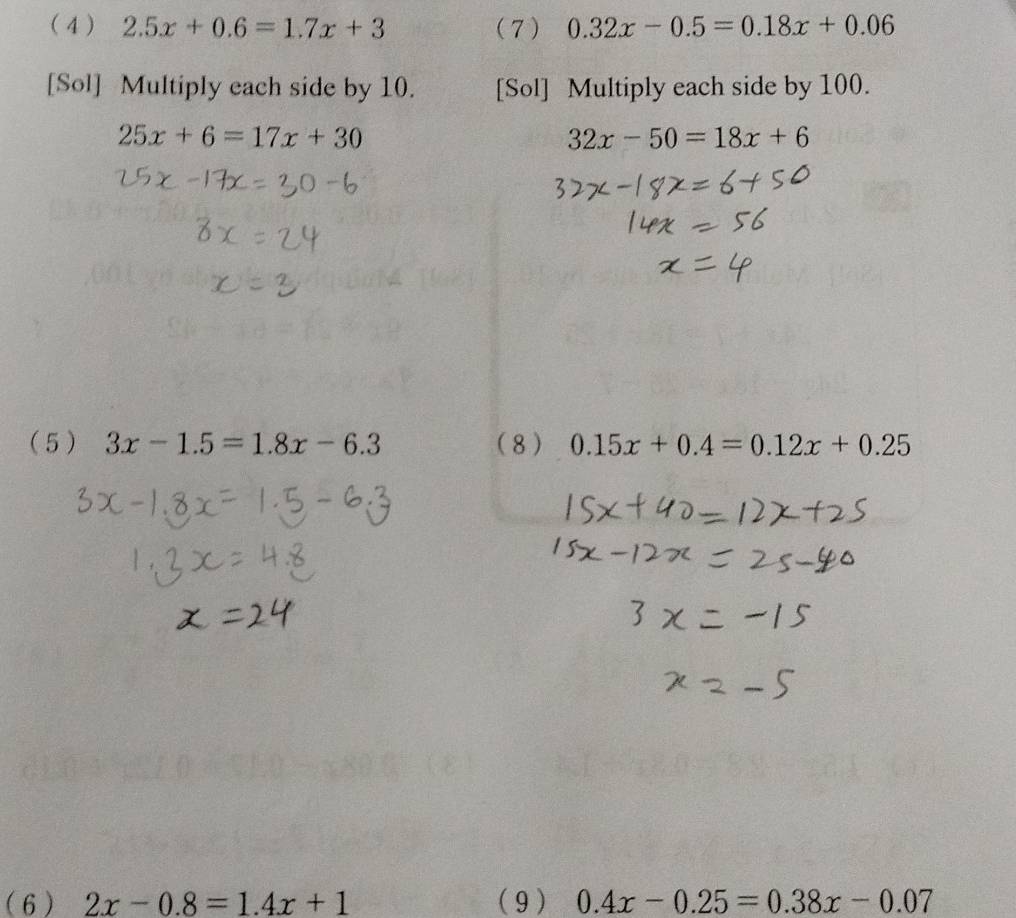 (4) 2.5x + 0.6 = 1.7x + 3
[Sol] Multiply each side by 10.
25x + 6 = 17x + 30
25x - 17x = 30 - 6
8x = 24
x = 3
(5) 3x - 1.5 = 1.8x - 6.3
3x - 1.8x = 1.5 - 6.3
1.3x = 4.8
x = 24
(6) 2x - 0.8 = 1.4x + 1
(7) 0.32x - 0.5 = 0.18x + 0.06
[Sol] Multiply each side by 100.
32x - 50 = 18x + 6
32x - 18x = 6 + 50
14x = 56
x = 4
(8) 0.15x + 0.4 = 0.12x + 0.25
15x + 40 = 12x + 25
15x - 12x = 25 - 40
3x = -15
x = -5
(9) 0.4x - 0.25 = 0.38x - 0.07